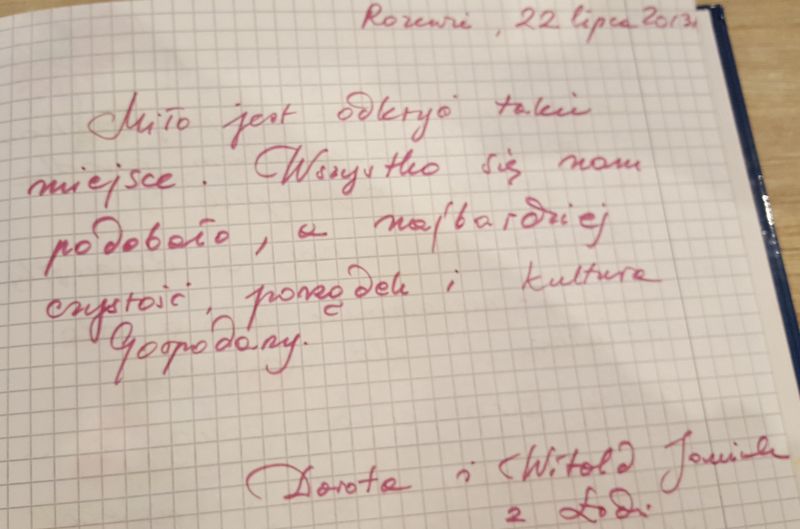 22 lipca 2013r.
Miło jest odkryć takie
miejsce. Wszystko się nam
podobało, a najbardziej
czystość, porządek i kultura
Gospodarzy.
Dorota i Witold
z Łodzi.